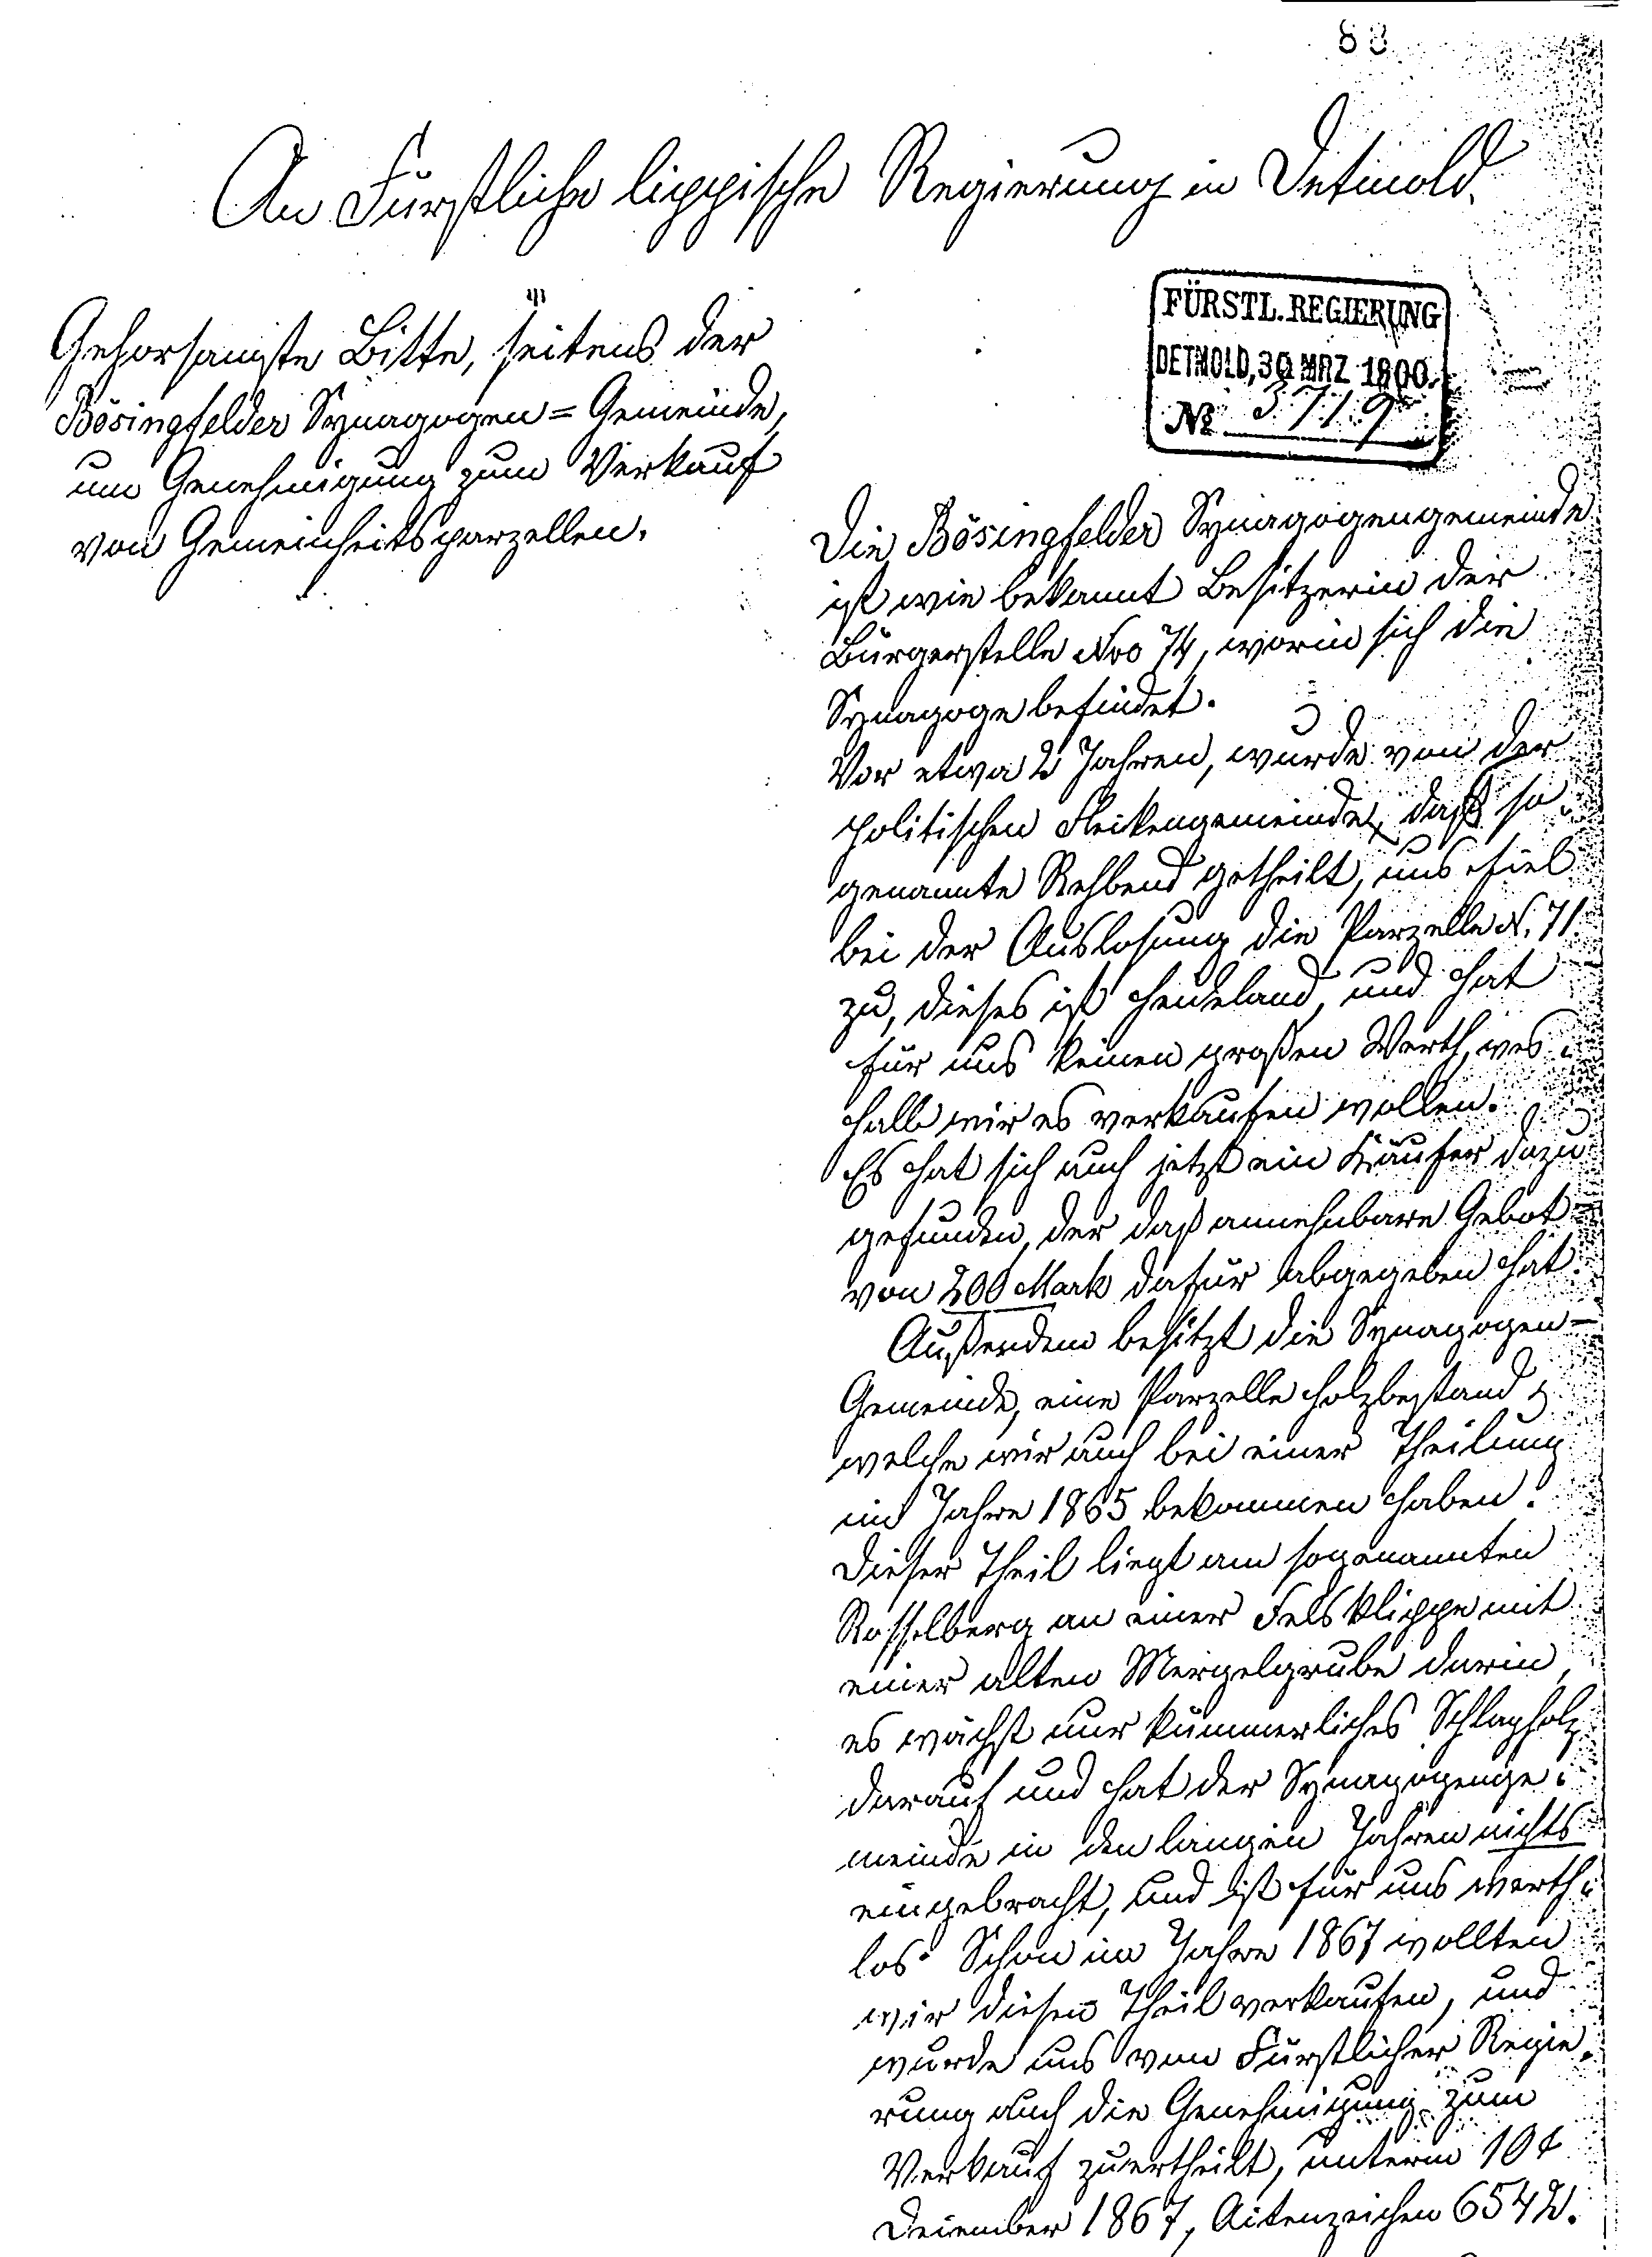 88
An Fürstliche lippische Regierung in Detmold.
FÜRSTL. REGIERUNG
DETMOLD, 30 MRZ 1900.
No 3719
Gehorsamste Bitte, seitens der
Bösingfelder Synagogen=Gemeinde,
um Genehmigung zum Verkauf
von Gemeinheitsparzellen.
Die Bösingfelder Synagogengemeinde
ist wie bekannt Besitzerin der
Bürgerstelle Nro 74, worin sich die
Synagoge befindet.
Vor etwa 2 Jahren, wurde von der
politischen Fleckengemeinde, daß so-
genannte Rehbend getheilt, uns fiel
bei der Auslosung die Parzelle N. 71.
zu, dieses ist Heideland, und hat
für uns keinen großen Werth, wes-
halb wir es verkaufen wollen.
Es hat sich auch jetzt ein Käufer dazu
gefunden, der daß annehmbare Gebot
von 200 Mark dafür abgegeben hat.
Außerdem besitzt die Synagogen-
Gemeinde, eine Parzelle Holzbestand,
welche wir auch bei einer Theilung
im Jahre 1865 bekommen haben.
Dieser Theil liegt am sogenannten
Rosselberg an einer Felsklippe mit
einer alten Mergelgrube darin,
es wächst nur kümmerliches Schlagholz
darauf und hat der Synagogenge-
meinde in den langen Jahren nichts
eingebracht, und ist für uns werth-
los. Schon im Jahre 1867 wollten
wir diesen Theil verkaufen, und
wurde uns von Fürstlicher Regie-
rung auch die Genehmigung zum
Verkauf zuertheilt, unterm 10t
December 1867, Actenzeichen 6542.